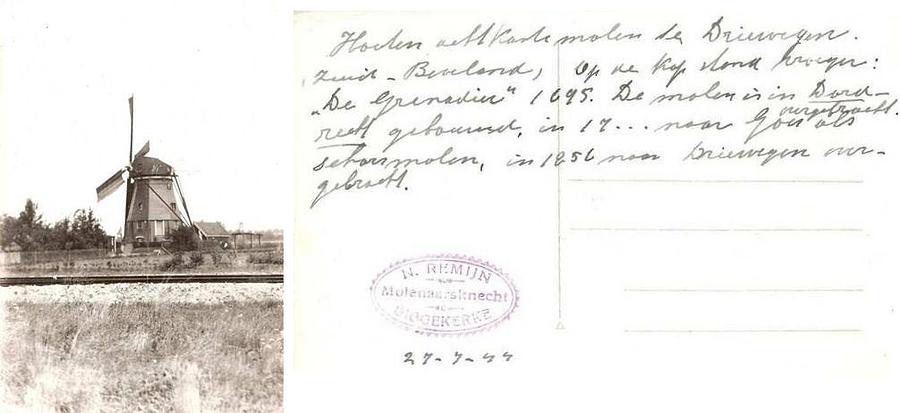 Houten achtkante molen te Driewegen.
Zuid-Beveland, op de kap stond vroeger:
„De Grenadier" 1695. De molen is in Dord-
recht gebouwd, in 17... naar Goes als overgebracht.
schorsmolen, in 1856 naar Driewegen over-
gebracht.
N. REMIJN
Molenaarsknecht
BIGGEKERKE
27-7-44